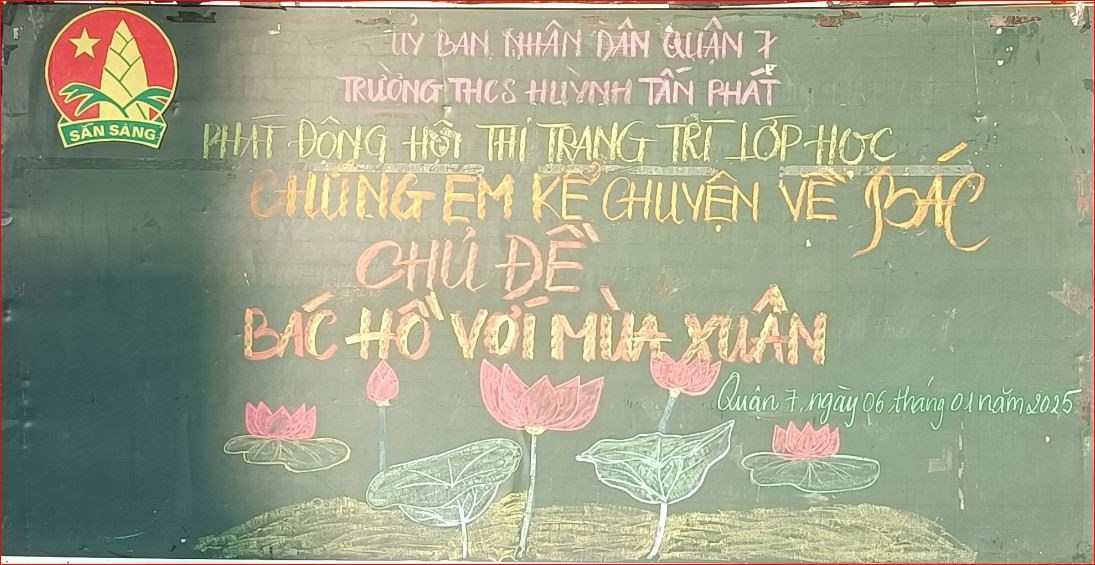 SẴN SÀNG
ỦY BAN NHÂN DÂN QUẬN 7
TRƯỜNG THCS HUỲNH TẤN PHÁT
PHÁT ĐỘNG HỘI THI TRANG TRÍ LỚP HỌC
CHÚNG EM KỂ CHUYỆN VỀ BÁC
CHỦ ĐỀ
BÁC HỒ VỚI MÙA XUÂN
Quận 7, ngày 06 tháng 01 năm 2025